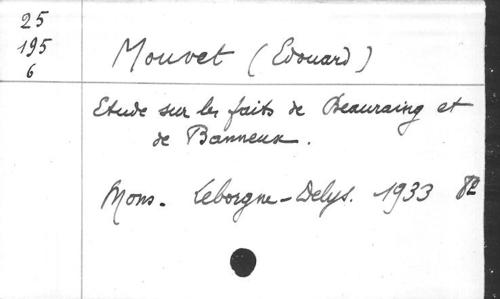 25
195
6
Mouvet (Edouard)
Etude sur les faits de Beauraing et
de Banneux.
Mons. Leborgne-Delys. 1933